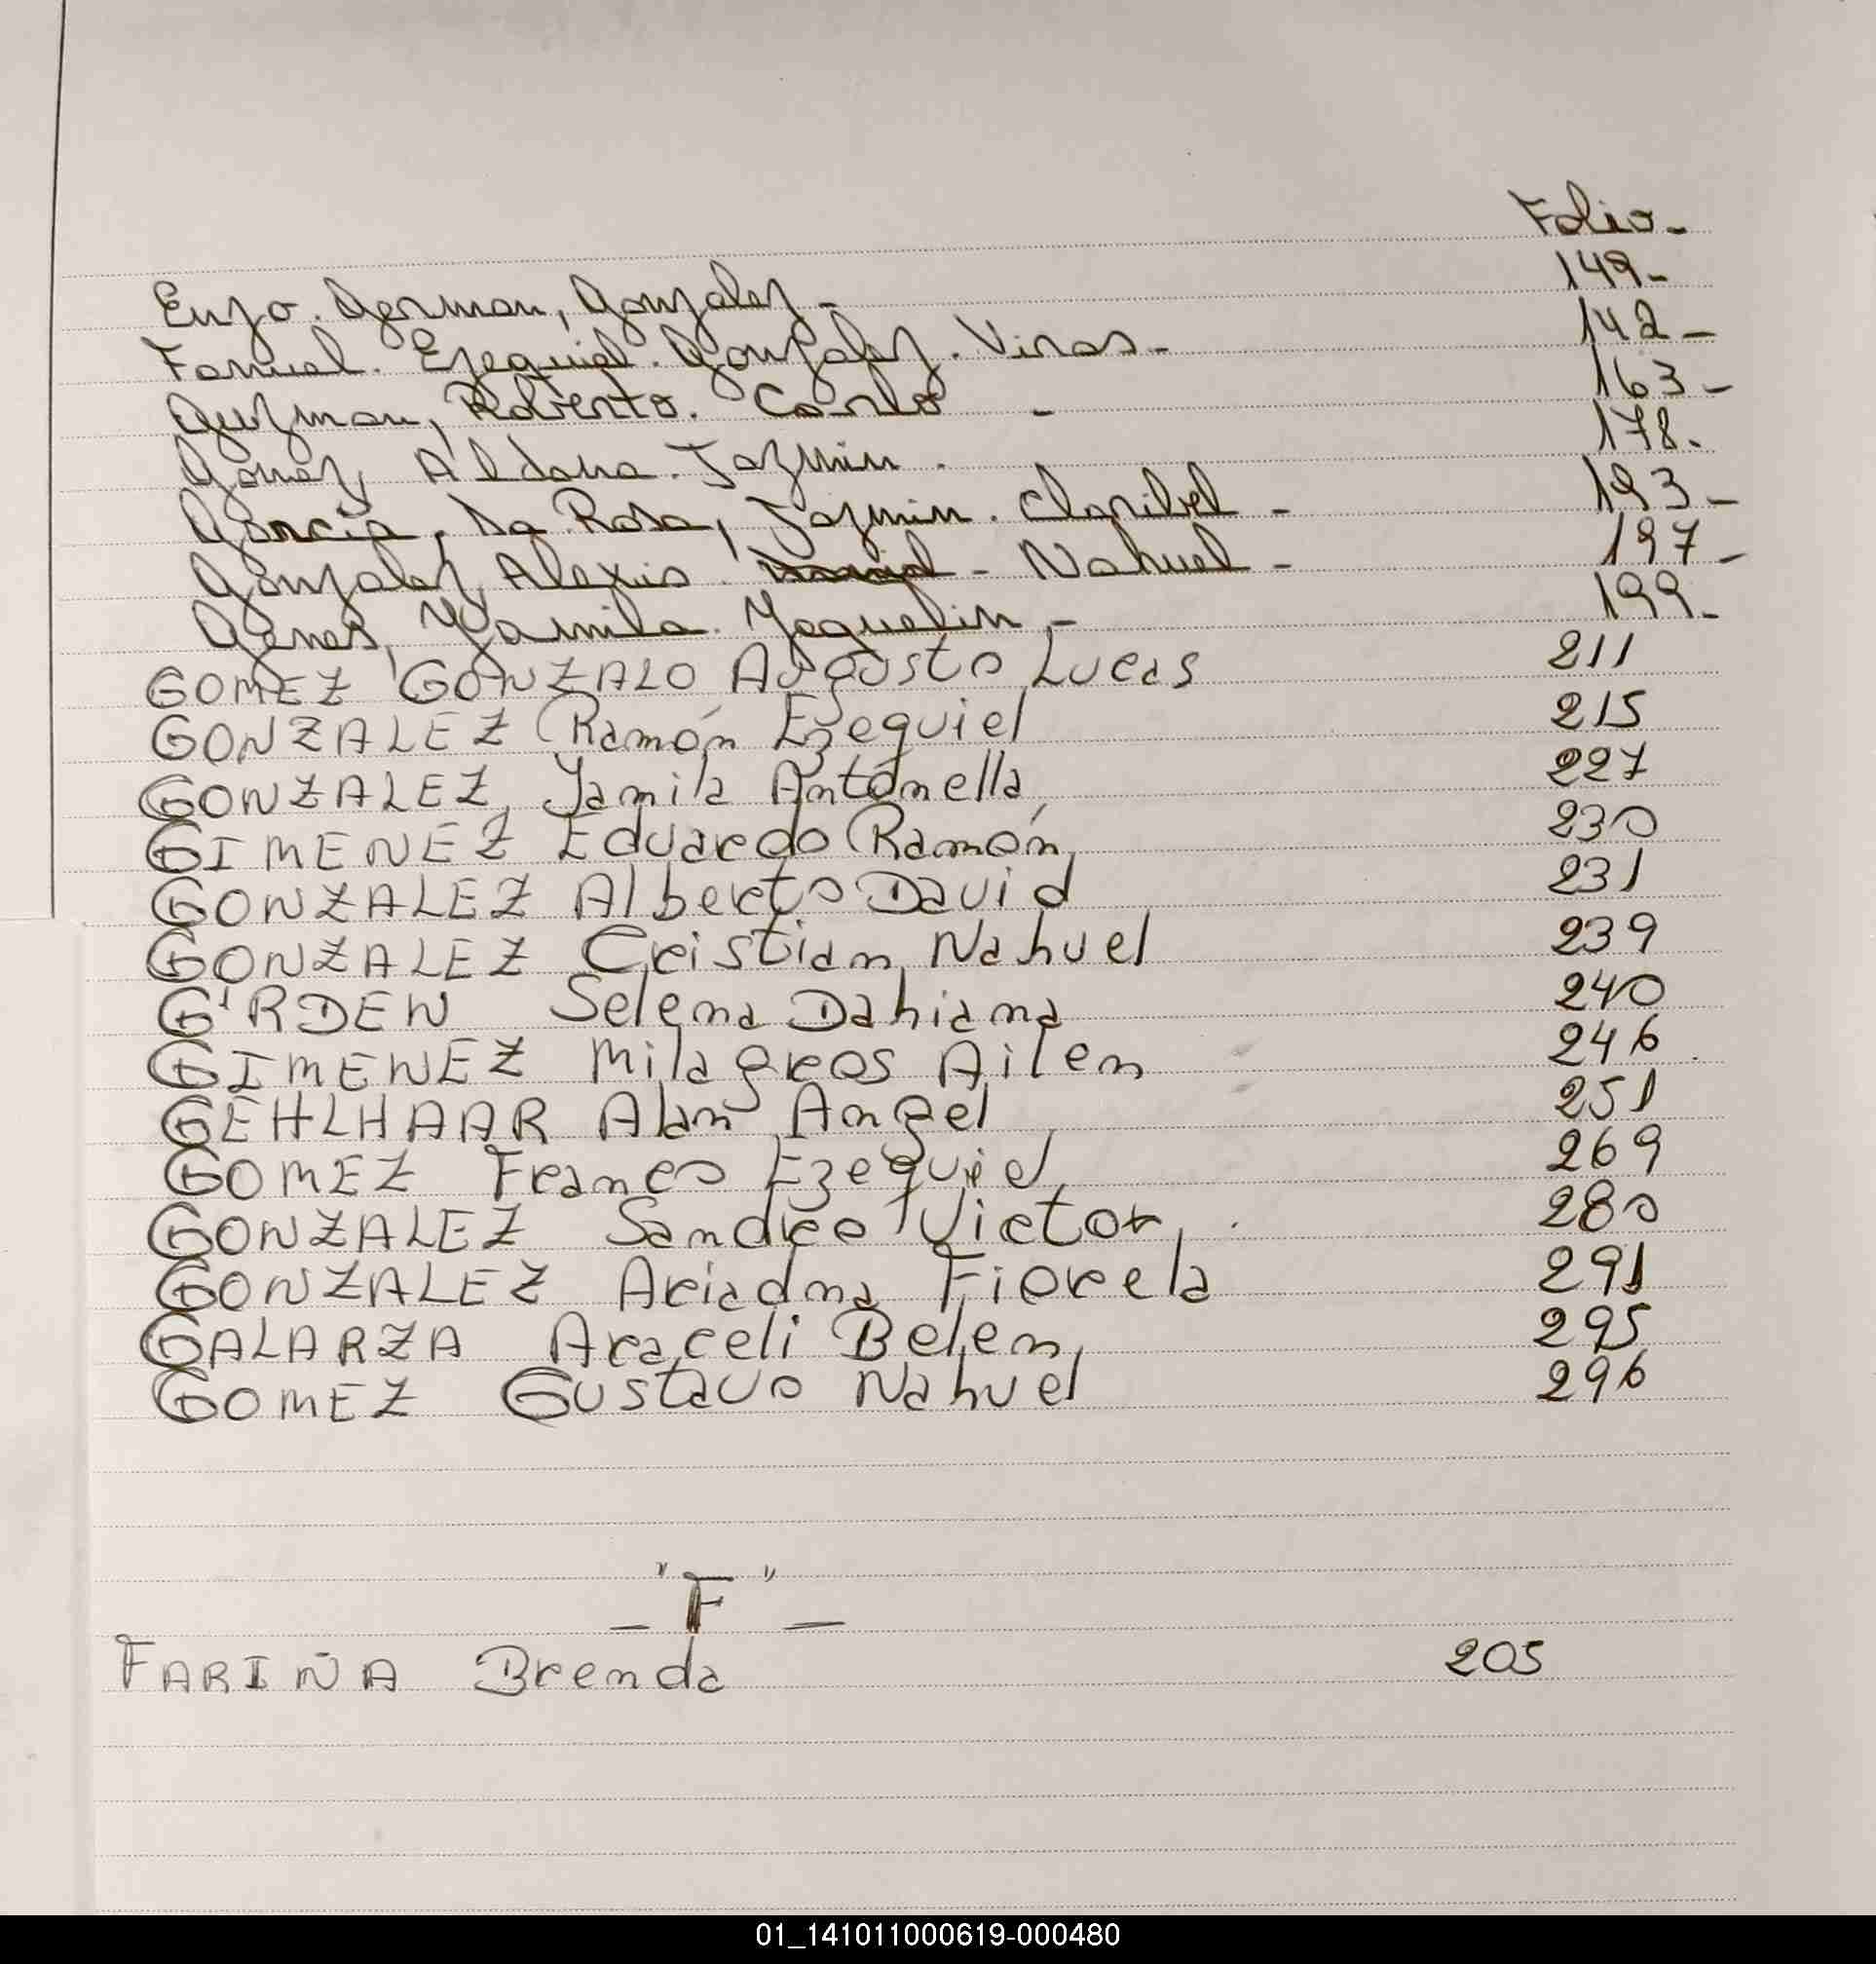 Folio-
Enzo. German, Gonzalez - 149-
Fanuel. Ezequiel. Gonzalez. Viras- 142-
Guzman, Roberto. Carlo - 163-
Gomez, Aldana. Jazmin. 178.
Garcia, Da Rosa, Jazmin. Claribel - 193-
Gonzalez, Alexis. - Nahuel - 197-
Genes, Yamila. Yaquelin,- 199-
GOMEZ GONZALO Augusto Lucas 211
GONZALEZ Ramón Ezequiel 215
GONZALEZ, Yamila Antonella 227
GIMENEZ Eduardo Ramón 230
GONZALEZ Alberto David 231
GONZALEZ Cristian Nahuel 239
G'RDEN Selena Dahiana 240
GIMENEZ Milagros Ailen 246
GEHLHAAR Alan Angel 251
GOMEZ Franco Ezequiel 269
GONZALEZ Sandro Victor 280
GONZALEZ Ariadna Fiorela 291
GALARZA Araceli Belen 295
GOMEZ Gustavo Nahuel 296
- "F" -
FARIÑA Brenda 205
01_141011000619-000480